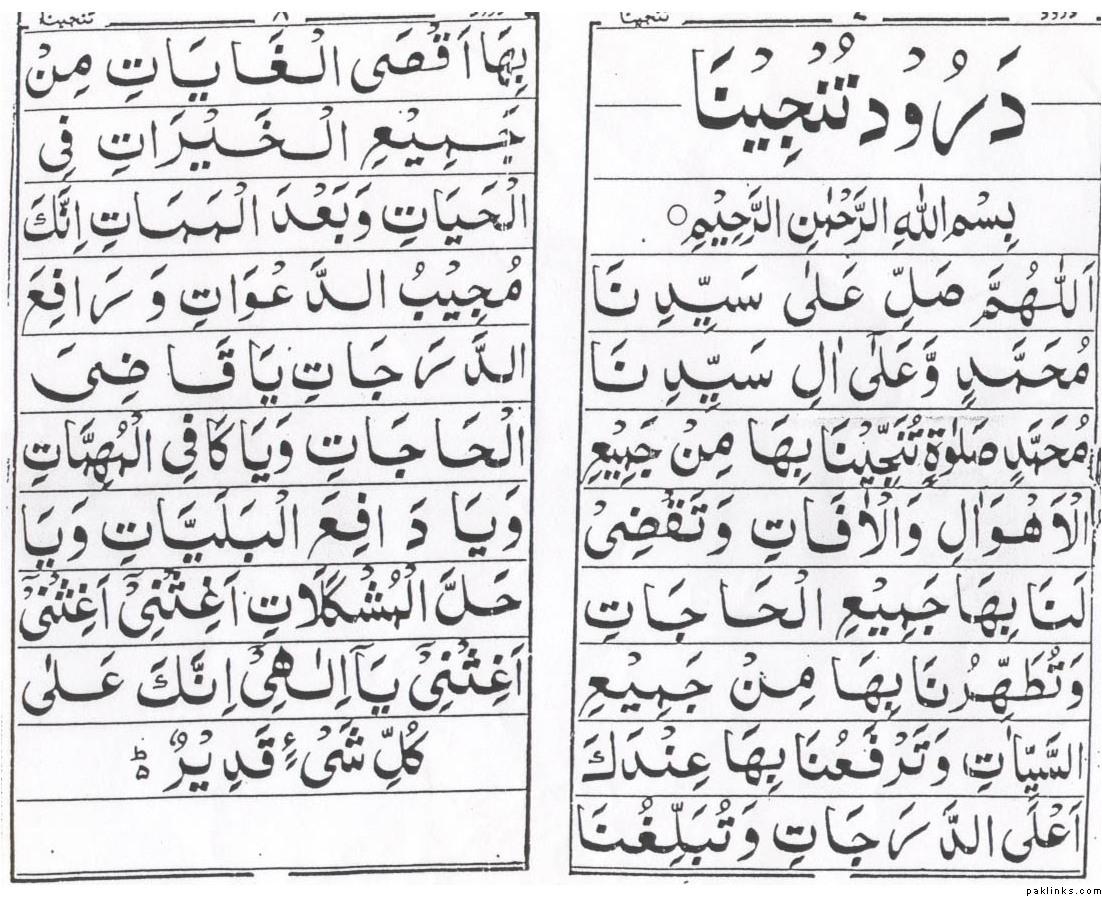 درود ے تنجینا
دَرُوْد تُنْجِيْنَا
بِسْمِ اللهِ الرَّحْمٰنِ الرَّحِيْمِ ○
اَللّٰهُمَّ صَلِّ عَلٰى سَيِّدِنَا
مُحَمَّدٍ وَّعَلٰٓى اٰلِ سَيِّدِنَا
مُحَمَّدٍ صَلٰوةً تُنَجِّيْنَا بِهَا مِنْ جَمِيْعِ
الْاَهْوَالِ وَالْاٰفَاتِ وَتَقْضِىْ
لَنَا بِهَا جَمِيْعِ الْحَاجَاتِ
وَتُطَهِّرُنَا بِهَا مِنْ جَمِيْعِ
السَّيِّاٰتِ وَتَرْفَعُنَا بِهَا عِنْدَكَ
اَعْلَى الدَّرَجَاتِ وَتُبَلِّغُنَا
درود ۸ تنجینا
بِهَا اَقْصَى الْغَايَاتِ مِنْ
جَمِيْعِ الْخَيْرَاتِ فِى
الْحَيَاتِ وَبَعْدَ الْمَمَاتِ اِنَّكَ
مُجِيْبُ الدَّعْوَاتِ وَ رَافِعَ
الدَّرَجَاتِ يَا قَاضِىَ
الْحَاجَاتِ وَيَا كَافِى الْمُهِمَّاتِ
وَيَا دَافِعَ الْبَلَيَّاتِ وَيَا
حَلَّ الْمُشْكَلَاتِ اَغِثْنِىْٓ اَغِثْنِىْٓ
اَغِثْنِىْٓ يَآ اِلٰهِىْٓ اِنَّكَ عَلٰى
كُلِّ شَىْءٍ قَدِيْرٌ ؕ
paklinks.com